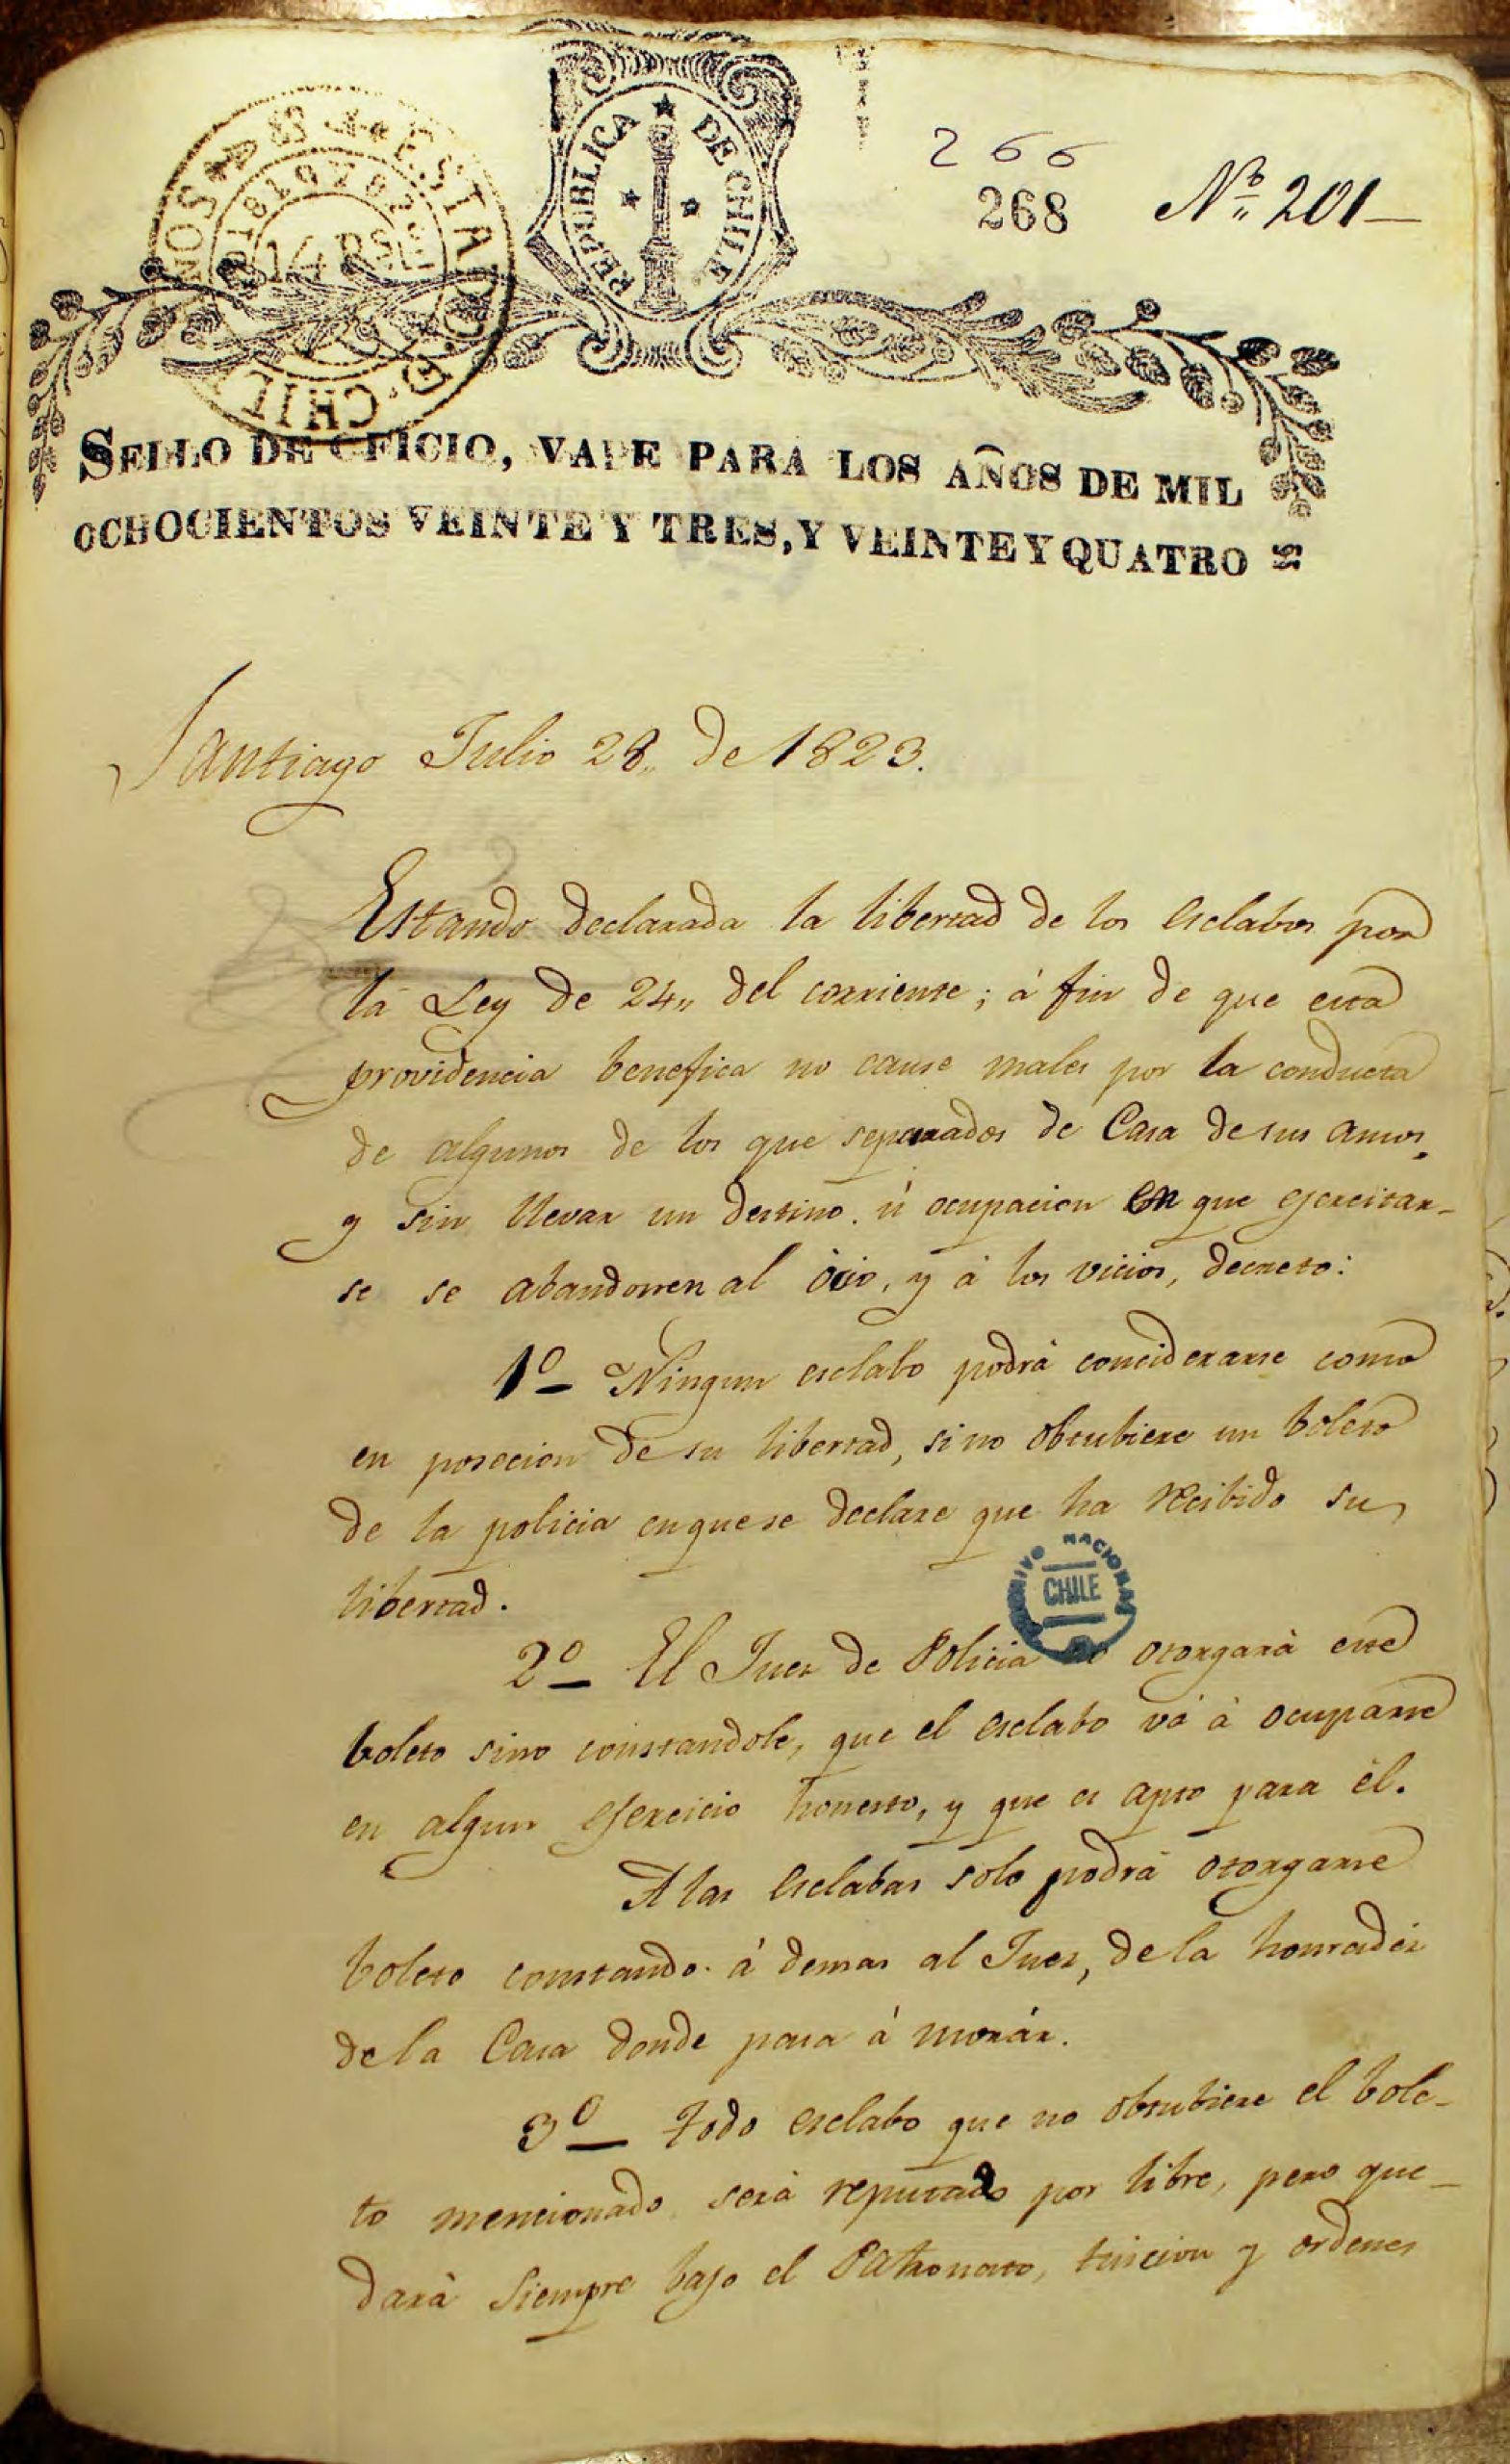 REPUBLICA DE CHILE
ESTADO D. CHILE
266
268 Nº 201
SELLO DE OFICIO, VALE PARA LOS AÑOS DE MIL
OCHOCIENTOS VEINTE Y TRES, Y VEINTE Y QUATRO
Santiago Julio 28,, de 1823.
Estando declarada la libertad de los esclabos por
la Ley de 24,, del corriente; á fin de que esta
providencia benefica no cause males por la conducta
de algunos de los que separados de Casa de sus amos,
y sin llevar un destino ú ocupacion en que ejercitar-
se se abandonen al òcio, y á los vicios, decreto:
1º Ningun esclabo podrá conciderarse como
en posecion de su libertad, sino obtubiere un boleto
de la policia enquese declare que ha recibido su
libertad.
ARCHIVO NACIONAL
CHILE
2º El Juez de Policia no otorgarà este
boleto sino constandole, que el esclabo vá à ocuparse
en algun ejercicio honesto, y que es apto para él.
A las esclabas solo podrá otorgarse
boleto constando á demas al Juez, de la honradéz
dela Casa donde pasa á morár.
3º Todo esclabo que no obtubiere el bole-
to mencionado será reputado por libre, pero que-
dará siempre bajo el Patronato, tuicion y ordenes